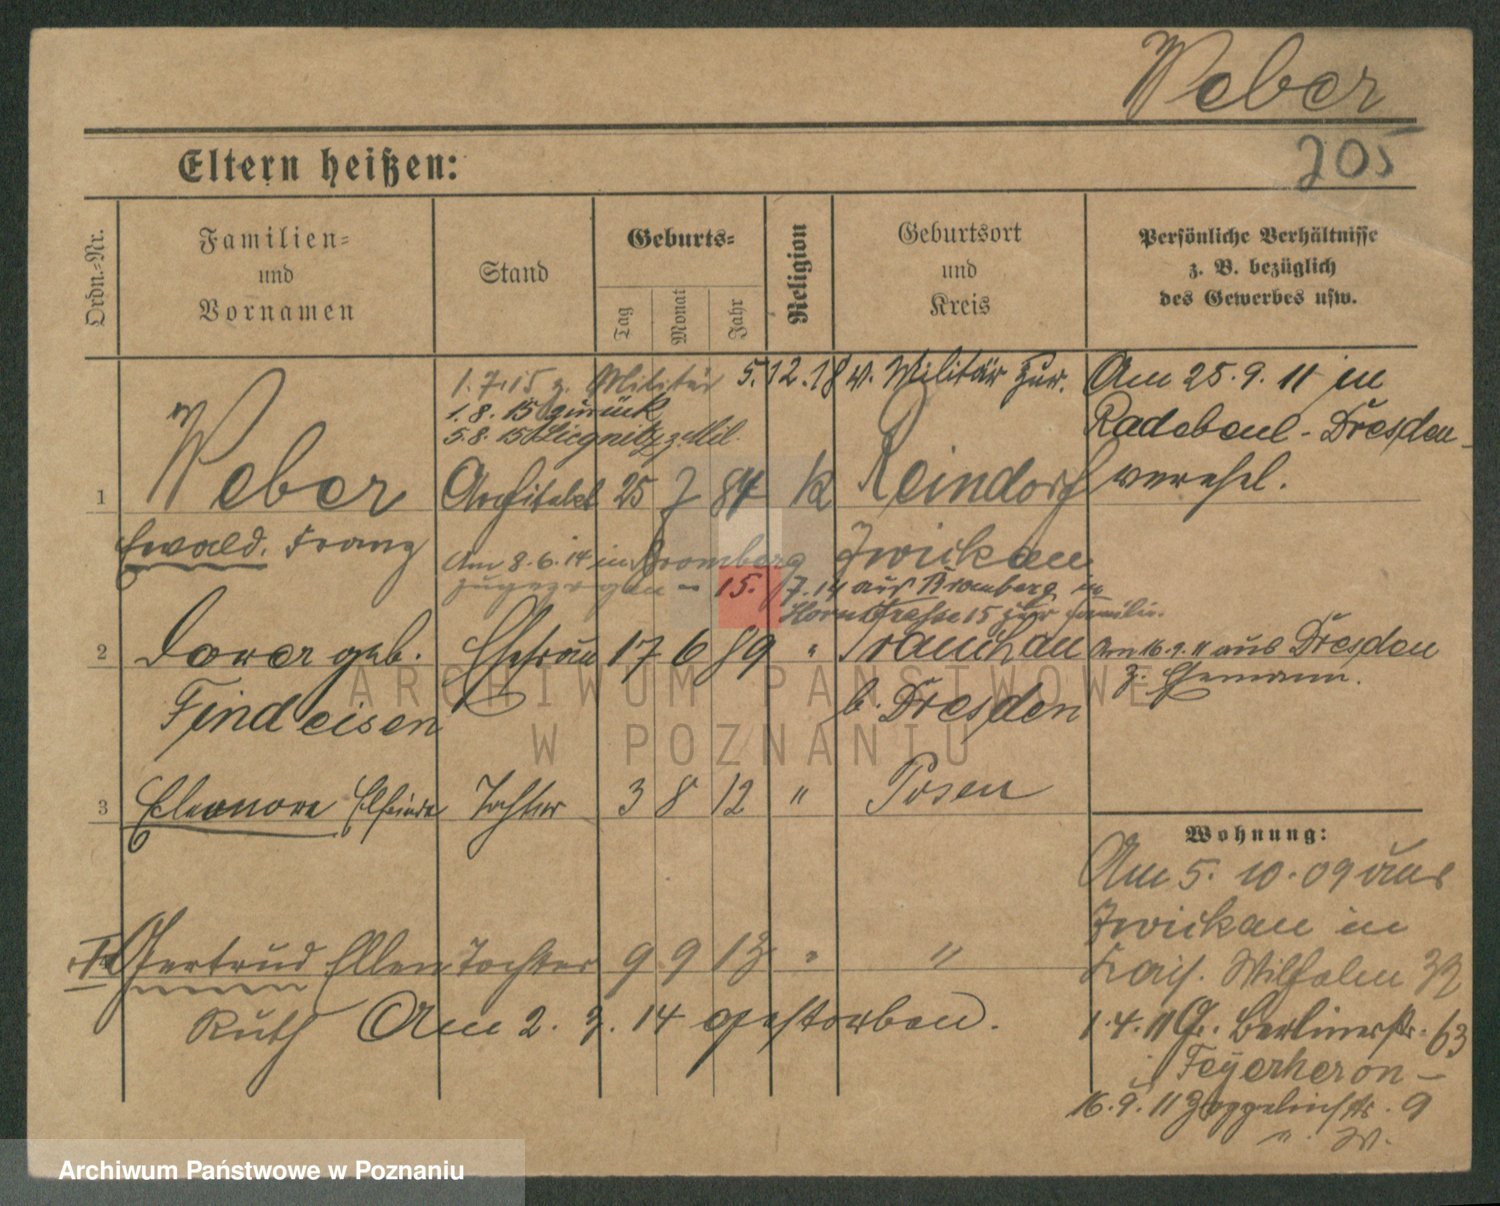 Weber
205
Eltern heißen:
Ordn.-Nr.
Familien-
und
Vornamen
Stand
Geburts-
Tag
Monat
Jahr
Religion
Geburtsort
und
Kreis
Persönliche Verhältnisse
z. B. bezüglich
des Gewerbes usw.
1.7.15 z. Militär 5.12.18 v. Militär zur.
1.8.15 zurück
5.8.15 Liegnitz z. Mil.
Am 25.9.11 in
Radebeul-Dresden-
verehel.
1 Weber Architekt 25 7 84 k Reindorf
Ewald Franz Zwickau
Am 8.6.14 in Bromberg
zugezogen - 15.7.14 aus Bromberg in
Hornstrasse 15 zur Familie.
2 geb. Ehefrau 17 6 89 " Trachau
Findeisen b. Dresden
Am 16.9.11 aus Dresden
z. Ehemann.
3 Eleonore Elfriede Tochter 3 8 12 " Posen
Gertrud Ellen Tochter 9 9 13 " "
Ruth Am 2. 3. 14 gestorben.
Wohnung:
Am 5. 10. 09 aus
Zwickau in
Kais. Wilhelm 32
1.4.11 G. Berlinerstr. 63
Feyerheron -
16.9.11 Zeppelinstr. 9
ARCHIWUM PAŃSTWOWE
W POZNANIU
Archiwum Państwowe w Poznaniu